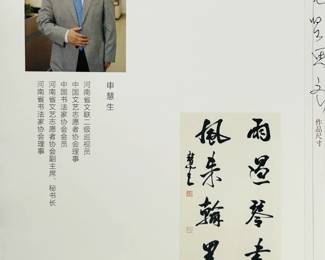 作品尺寸
雨過琴書
風來翰墨
慧生
申慧生
河南省文联二级巡视员
中国文艺志愿者协会理事
中国书法家协会会员
河南省文艺志愿者协会副主席、秘书长
河南省书法家协会理事